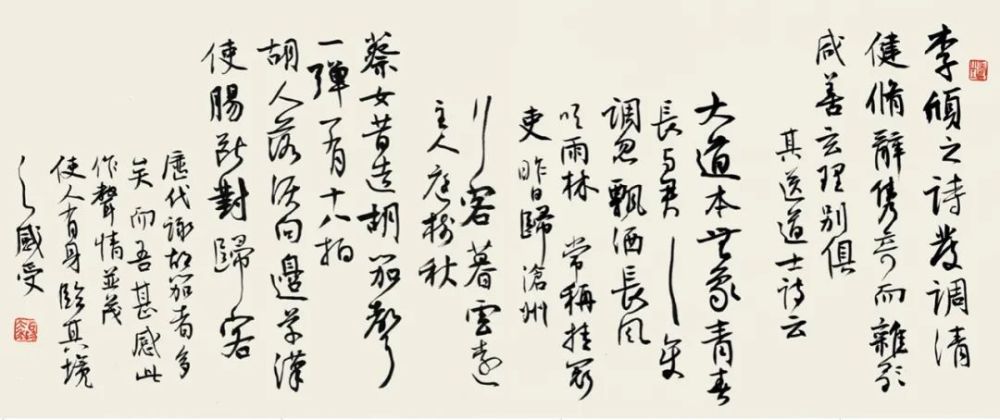 李頎之詩發調清
健脩辭雋奇而雜歌
咸善玄理別俱
其送道士詩云
大道本無我青春
長与君 變
調忽飄洒長風
吹雨林 常稱挂冠
吏 昨日歸滄州
行客暮雲遠
主人庭樹秋
蔡女昔造胡笳聲
一彈一有十八拍
胡人落淚向邊草漢
使腸斷對歸客
歷代詠胡笳者多
矣而吾甚感此
作聲情並茂
使人有身臨其境
之感受